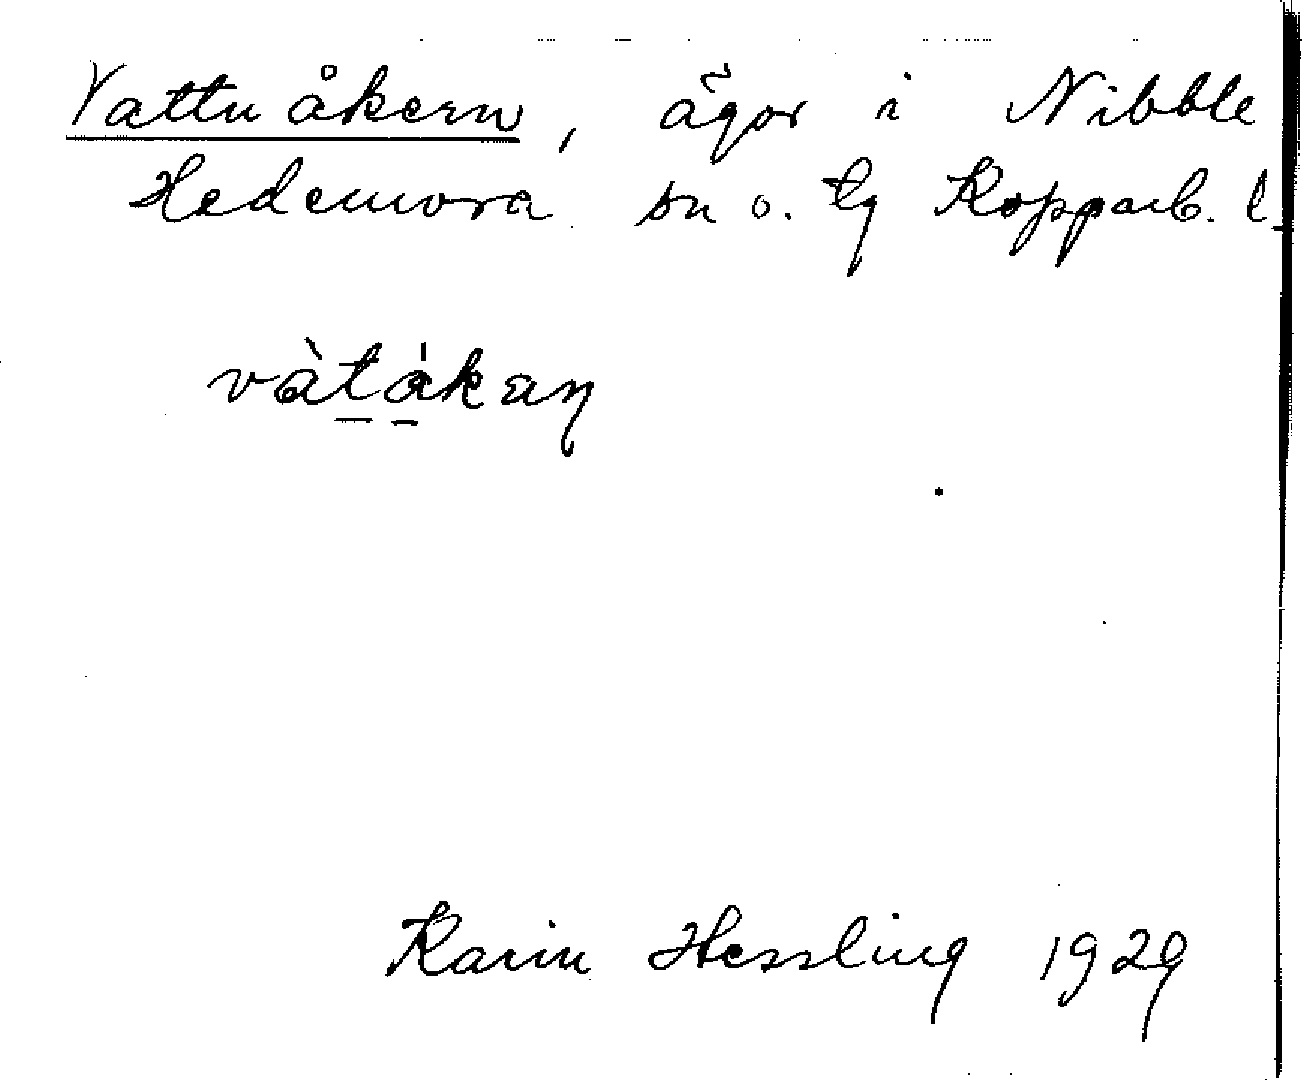 Vattuåkern, ägor i Nibble
Hedemora sn o. tg Kopparb. l.
vàtákaŋ
Karin Hessling 1929